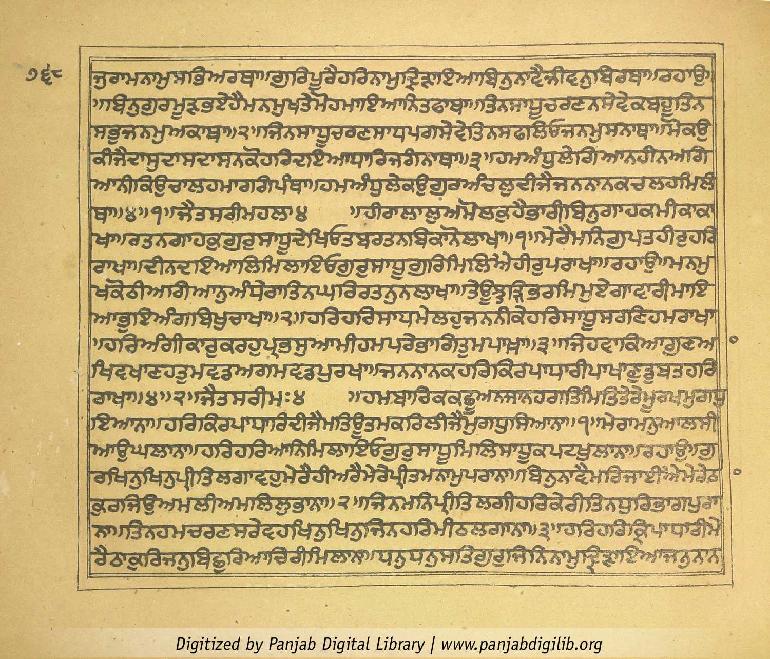 ੭੬੮
ਜੁਰਾਮਨਾਮੁਸਭਿਅਰਥਾ॥ਗੁਰਿਪੂਰੈਹਰਿਨਾਮੁਦ੍ਰਿੜਾਇਆਬਿਨੁਨਾਵੈਜੀਵਨੁਬਿਰਥਾ॥ਰਹਾਉ
॥ਬਿਨੁਗੁਰਮੂੜਭਏਹੈਮਨਮੁਖਤੇਮੋਹਮਾਇਆਨਿਤਫਾਥਾ॥ਤਿਨਸਾਧੂਚਰਣਨਸੇਵੇਕਬਹੂਤਿਨ
ਸਭੁਜਨਮੁਅਕਾਥਾ॥੨॥ਜਿਨਸਾਧੂਚਰਣਸਾਧਪਗਸੇਵੇਤਿਨਸਫਲਿਓਜਨਮੁਸਨਾਥਾ॥ਮੋਕਉ
ਕੀਜੈਦਾਸੁਦਾਸਦਾਸਨਕੋਹਰਿਦਇਆਧਾਰਿਜਗੰਨਾਥਾ॥੩॥ਹਮਅੰਧੁਲੇਗਿਆਨਹੀਨਅਗਿ
ਆਨੀਕਿਉਚਾਲਹਮਾਰਗਿਪੰਥਾ॥ਹਮਅੰਧੁਲੇਕਉਗੁਰਅੰਚਲੁਦੀਜੈਜਨਨਾਨਕਚਲਹਮਿਲੰ
ਥਾ॥੪॥੧॥ਜੈਤਸਰੀਮਹਲਾ੪ ॥ਹੀਰਾਲਾਲੁਅਮੋਲਕੁਹੈਭਾਰੀਬਿਨੁਗਾਹਕਮੀਕਾਕਾ
ਖਾ॥ਰਤਨਗਾਹਕੁਗੁਰੁਸਾਧੂਦੇਖਿਓਤਬਰਤਨੁਬਿਕਾਨੋਲਾਖਾ॥੧॥ਮੇਰੈਮਨਿਗੁਪਤਹੀਰੁਹਰਿ
ਰਾਖਾ॥ਦੀਨਦਇਆਲਿਮਿਲਾਇਓਗੁਰੁਸਾਧੂਗੁਰਿਮਿਲਿਐਹੀਰੁਪਰਾਖਾ॥ਰਹਾਉ॥ਮਨਮੁ
ਖਕੋਠੀਅਗਿਆਨੁਅੰਧੇਰਾਤਿਨਘਰਿਰਤਨੁਨਲਾਖਾ॥ਤੇਊਝੜਿਭਰਮਿਮੁਏਗਾਵਾਰੀਮਾਇ
ਆਭੁਇਅੰਗਬਿਖੁਚਾਖਾ॥੨॥ਹਰਿਹਰਿਸਾਧਮੇਲਹੁਜਨਨੀਕੇਹਰਿਸਾਧੂਸਰਣਿਹਮਰਾਖਾ
॥ਹਰਿਅੰਗੀਕਾਰੁਕਰਹੁਪ੍ਰਭਸੁਆਮੀਹਮਪਰੇਭਾਗਿਤੁਮਪਾਖਾ॥੩॥ਜਿਹਵਾਕਿਆਗੁਣਆ
ਖਿਵਖਾਣਹਤੁਮਵਡਅਗਮਵਡਪੁਰਖਾ॥ਜਨਨਾਨਕਹਰਿਕਿਰਪਾਧਾਰੀਪਾਖਾਣੁਡੁਬਤਹਰਿ
ਰਾਖਾ॥੪॥੨॥ਜੈਤਸਰੀਮਃ੪ ॥ਹਮਬਾਰਿਕਕਛੂਅਨਜਾਨਹਗਤਿਮਿਤਿਤੇਰੇਮੂਰਖਮੁਗਧ
ਇਆਨਾ॥ਹਰਿਕਿਰਪਾਧਾਰਿਦੀਜੈਮਤਿਊਤਮਕਰਿਲੀਜੈਮੁਗਧੁਸਿਆਨਾ॥੧॥ਮੇਰਾਮਨੁਆਲਸੀ
ਆਉਘਲਾਨਾ॥ਹਰਿਹਰਿਆਨਿਮਿਲਾਇਓਗੁਰੁਸਾਧੂਮਿਲਿਸਾਧੂਕਪਟਖੁਲਾਨਾ॥ਰਹਾਉ॥ਗੁ
ਰਖਿਨੁਖਿਨੁਪ੍ਰੀਤਿਲਗਾਵਹੁਮੇਰੈਹੀਅਰੈਮੇਰੇਪ੍ਰੀਤਮਨਾਮੁਪਰਾਨਾ॥ਬਿਨੁਨਾਵੈਮਰਿਜਾਈਐਮੇਰੇਠਾ
ਕੁਰਜਿਉਅਮਲੀਅਮਲਿਲੁਭਾਨਾ॥੨॥ਜਿਨਮਨਿਪ੍ਰੀਤਿਲਗੀਹਰਿਕੇਰੀਤਿਨਧੁਰਿਭਾਗਪੁਰਾ
ਨਾ॥ਤਿਨਹਮਚਰਣਸਰੇਵਹਖਿਨੁਖਿਨੁਜਿਨਹਰਿਮੀਠਲਗਾਨਾ॥੩॥ਹਰਿਹਰਿਕ੍ਰਿਪਾਧਾਰੀਮੇ
ਰੈਠਾਕੁਰਿਜਨੁਬਿਛੁਰਿਆਚਿਰੀਮਿਲਾਨਾ॥ਧਨੁਧਨੁਸਤਿਗੁਰੁਜਿਨਿਨਾਮੁਦ੍ਰਿੜਾਇਆਜਨੁਨਾਨ
Digitized by Panjab Digital Library | www.panjabdigilib.org